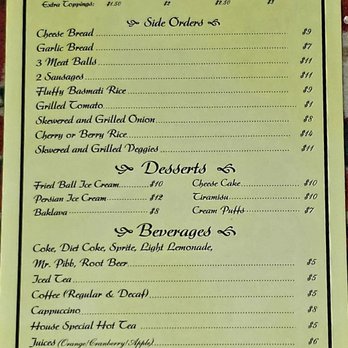 Extra Toppings: $1.50 $2 $2.50 $3
Side Orders
Cheese Bread $9
Garlic Bread $7
3 Meat Balls $11
2 Sausages $11
Fluffy Basmati Rice $9
Grilled Tomato $1
Skewered and Grilled Onion $8
Cherry or Berry Rice $14
Skwered and Grilled Veggies $11
Desserts
Fried Ball Ice Cream $10 Cheese Cake $10
Persian Ice Cream $12 Tiramisu $10
Baklava $8 Cream Puffs $7
Beverages
Coke, Diet Coke, Sprite, Light Lemonade,
Mr. Pibb, Root Beer $5
Iced Tea $5
Coffee (Regular & Decaf) $5
Cappuccino $8
House Special Hot Tea $5
Juices (Orange/Cranberry/Apple) $6